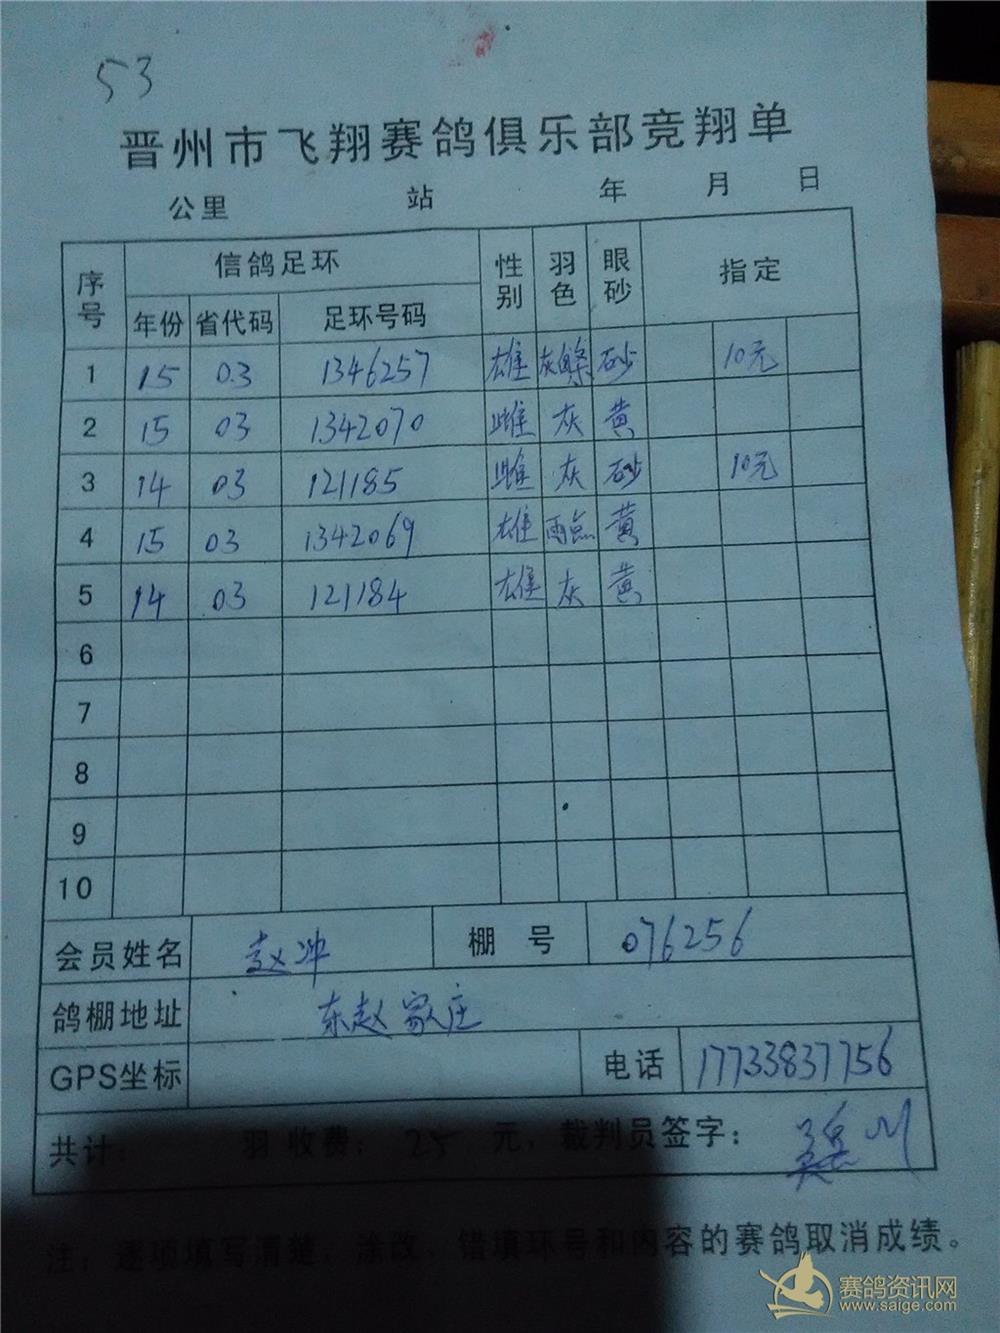 53
晋州市飞翔赛鸽俱乐部竞翔单
公里 站 年 月 日
序号 信鸽足环 性别 羽色 眼砂 指定
年份 省代码 足环号码
1 15 03 1346257 雄 灰 砂 10元
2 15 03 1342070 雌 灰 黄
3 14 03 121185 雌 灰 砂 10元
4 15 03 1342069 雄 雨点 黄
5 14 03 121184 雄 灰 黄
6
7
8
9
10
会员姓名 赵冲 棚号 076256
鸽棚地址 东赵家庄
GPS坐标 电话 17733837756
共计: 羽 收费: 25 元, 裁判员签字:
注: 逐项填写清楚, 涂改、错填环号和内容的赛鸽取消成绩。
赛鸽资讯网
www.saige.com